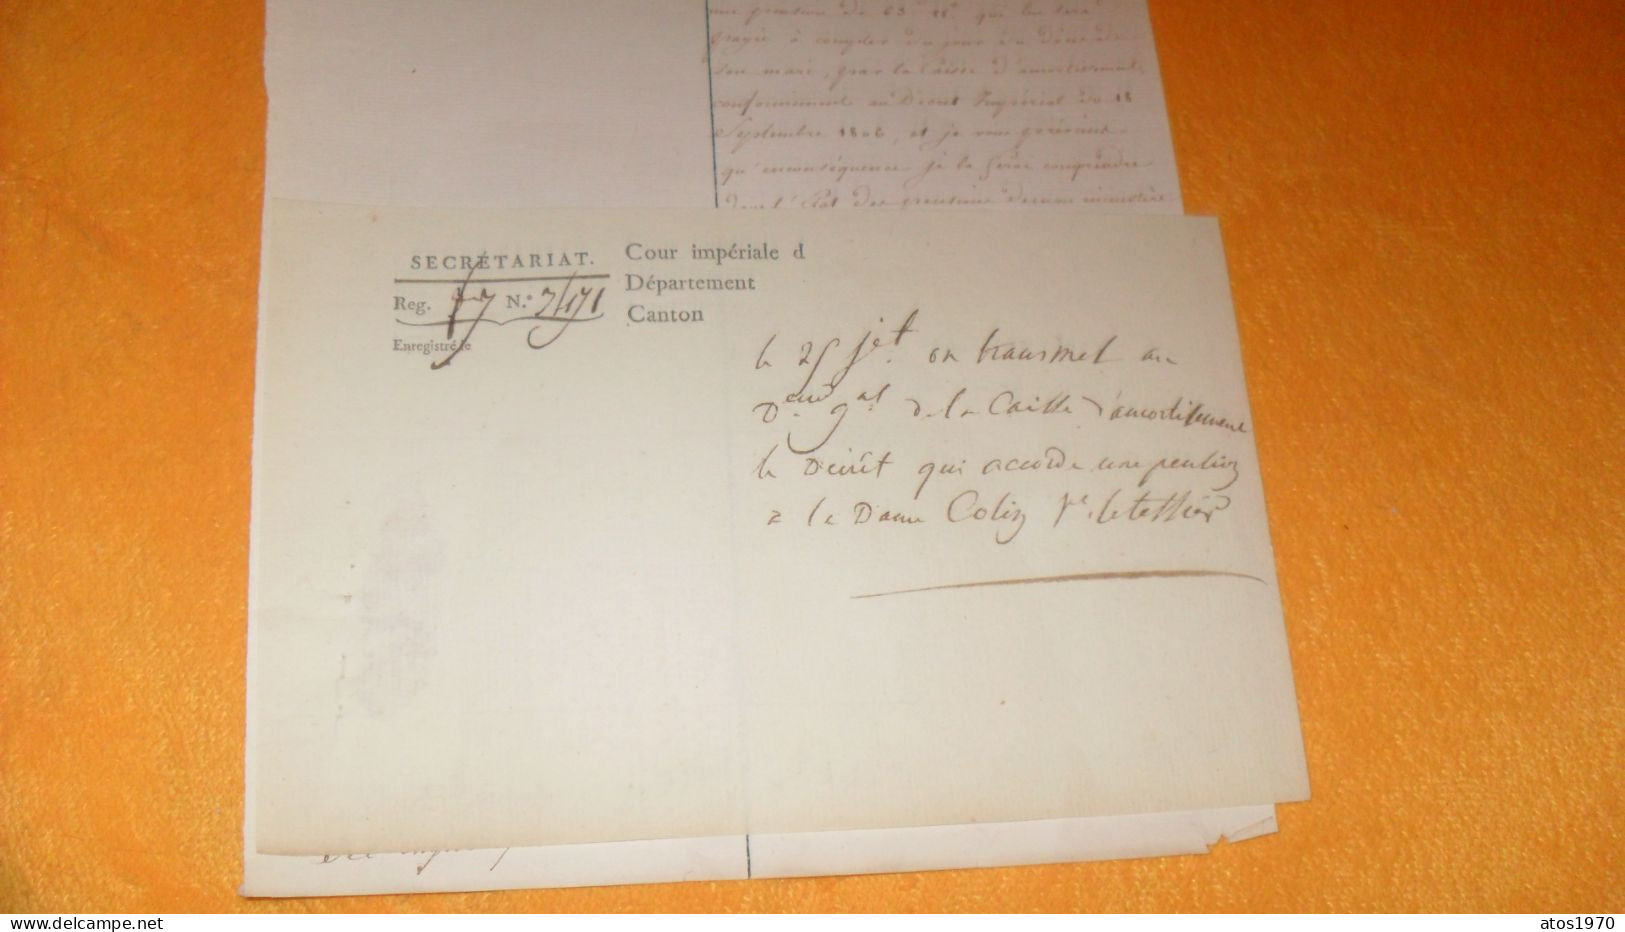 une pension de 63 qui lui sera
payée à compter du jour du décès de
son mari, par la Caisse d'amortissement,
conformément au Décret Impérial du 18
Septembre 1806, et je vous préviens
qu'en conséquence je la ferai comprendre
dans l'Etat des pensions de mon ministère
SECRÉTARIAT.
Reg. N.°
Enregistré le
Cour impériale d
Département
Canton
le 25 jet. on transmet au
D.eur g.al de la Caisse d'amortissement
le Décrêt qui accorde une pension
à la Dame Colin Ve. letellier
atos1970